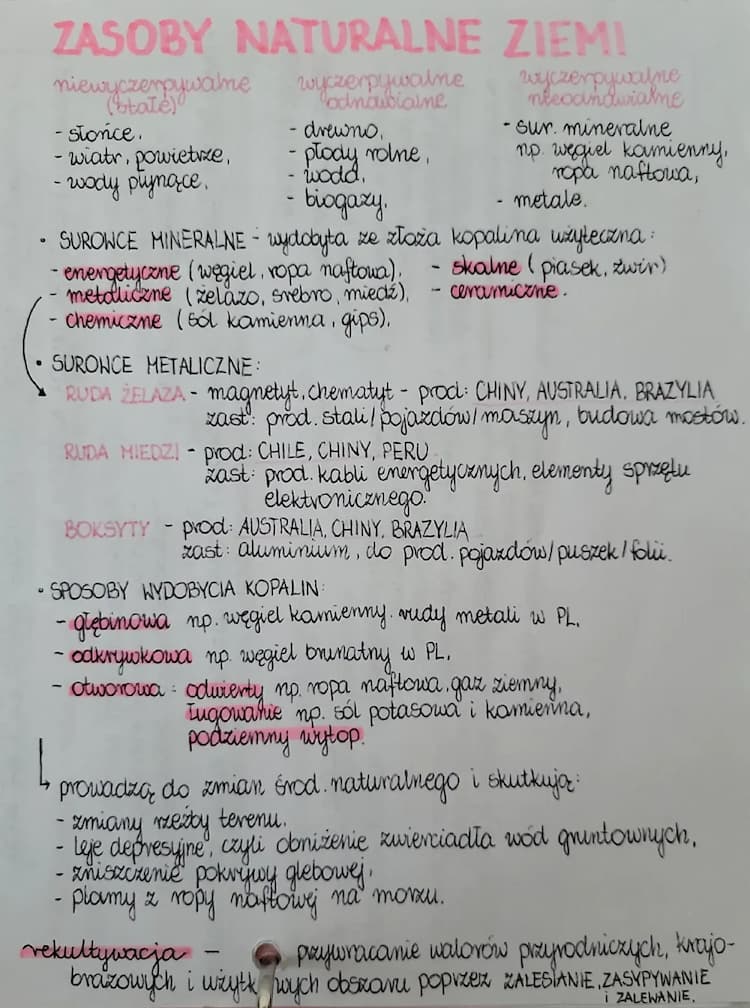 ZASOBY NATURALNE ZIEMI
niewyczerpywalne (stałe)
- słońce,
- wiatr, powietrze,
- wody płynące,
wyczerpywalne odnawialne
- drewno,
- płody rolne,
- woda,
- biogazy,
wyczerpywalne nieodnawialne
- sur. mineralne
np. węgiel kamienny,
ropa naftowa,
- metale.
• SUROWCE MINERALNE - wydobyta ze złoża kopalina użyteczna:
- energetyczne (węgiel, ropa naftowa),
- metaliczne (żelazo, srebro, miedź),
- chemiczne (sól kamienna, gips),
- skalne (piasek, żwir)
- ceramiczne.
• SUROWCE METALICZNE:
RUDA ŻELAZA - magnetyt, chematyt - prod: CHINY, AUSTRALIA, BRAZYLIA
zast: prod. stali/pojazdów/maszyn, budowa mostów.
RUDA MIEDZI - prod: CHILE, CHINY, PERU
zast: prod. kabli energetycznych, elementy sprzętu
elektronicznego.
BOKSYTY - prod: AUSTRALIA, CHINY, BRAZYLIA
zast: aluminium, do prod. pojazdów/puszek/folii.
• SPOSOBY WYDOBYCIA KOPALIN:
- głębinowa np. węgiel kamienny. rudy metali w PL,
- odkrywkowa np. węgiel brunatny w PL,
- otworowa: odwierty np. ropa naftowa, gaz ziemny,
ługowanie np. sól potasowa i kamienna,
podziemny wytop.
prowadzą do zmian środ. naturalnego i skutkują:
- zmiany rzeźby terenu.
- leje depresyjne, czyli obniżenie zwierciadła wód gruntownych,
- zniszczenie pokrywy glebowej,
- plamy z ropy naftowej na morzu.
rekultywacja - przywracanie walorów przyrodniczych, krajo-
brazowych i użytkowych obszaru poprzez ZALESIANIE, ZASYPYWANIE
i ZALEWANIE.